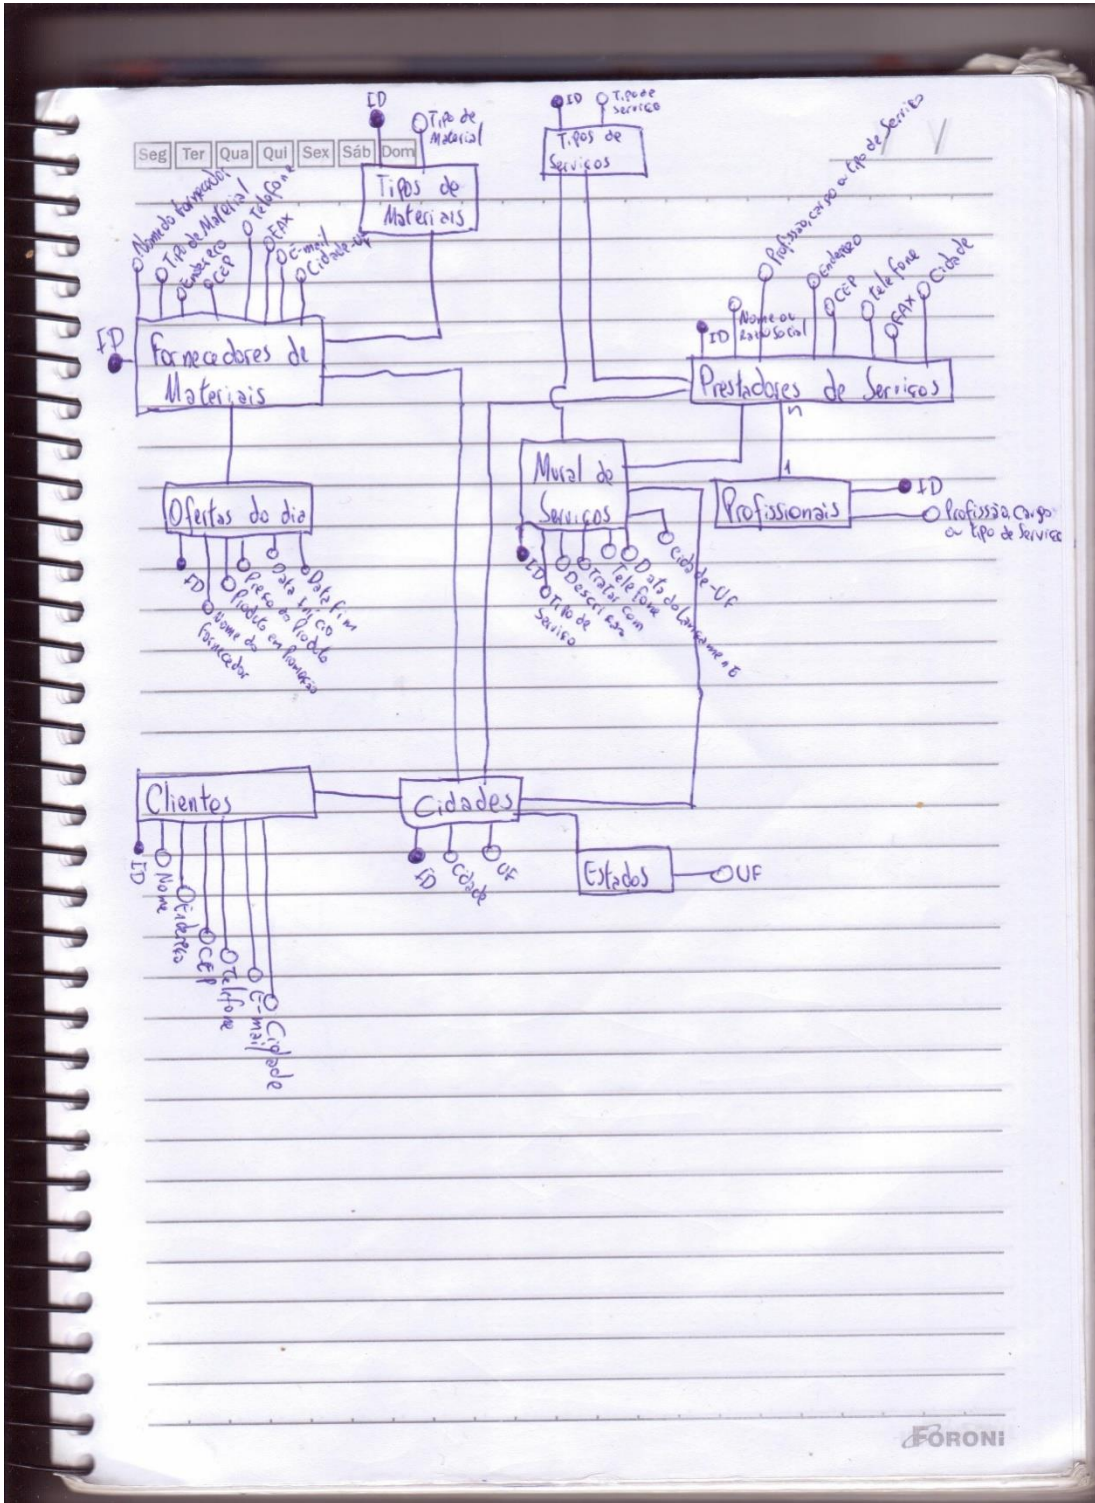 Seg Ter Qua Qui Sex Sáb Dom
ID
Tipo de
Material
Tipos de
Materiais
ID
Tipo de
Serviço
Tipos de
Serviços
Nome do fornecedor
Tipo de Material
Endereço
CEP
Telefone
FAX
E-mail
Cidade-UF
ID
Fornecedores de
Materiais
ID
Nome ou
Razão Social
Profissão, cargo ou tipo de Serviço
Endereço
CEP
Telefone
FAX
Cidade
Prestadores de Serviços
n
1
Profissionais
ID
Profissão, Cargo
ou tipo de Serviço
Mural de
Serviços
ID
Tipo de
Serviço
Descrição
Tratar com
Telefone
Data do Lançamento
Cidade-UF
Ofertas do dia
ID
Nome do
fornecedor
Produto em Promoção
Preço do Produto
Data início
Data fim
Clientes
ID
Nome
Endereço
CEP
Telefone
E-mail
Cidade
Cidades
ID
Cidade
UF
Estados
UF
FORONI